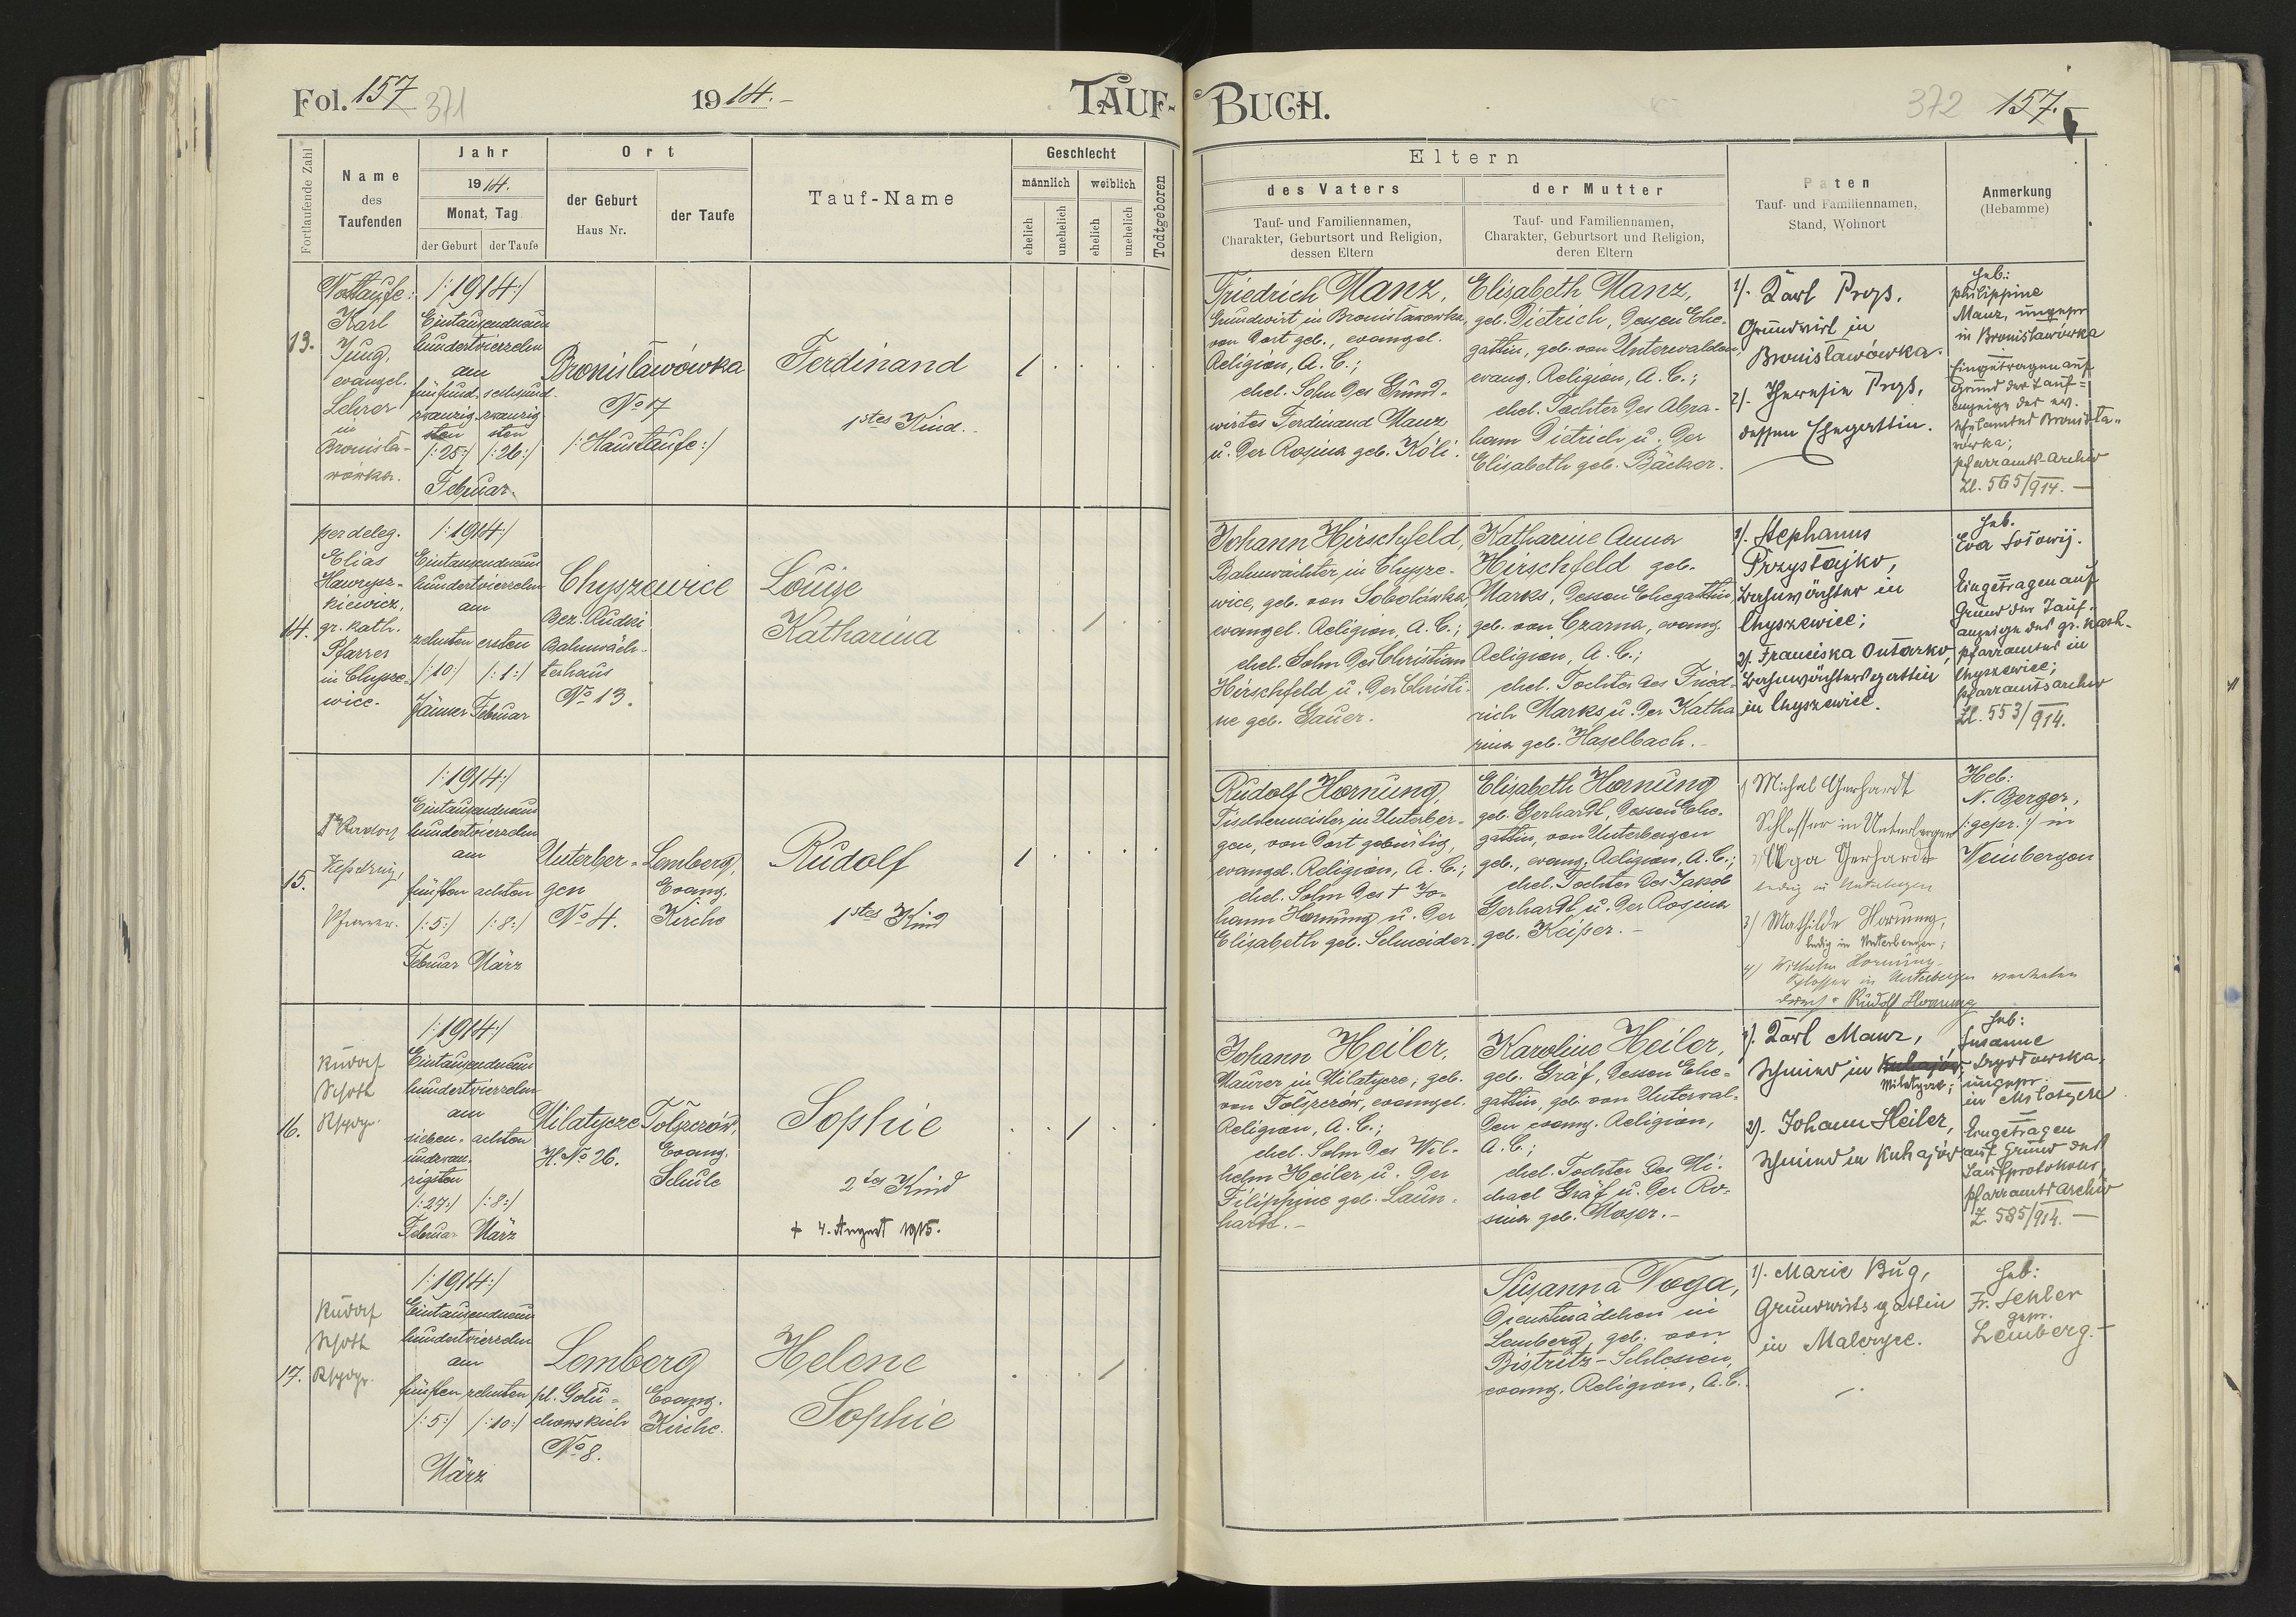 Fol. 157 371
1914.-
TAUF-
BUCH.
372 157.
Fortlaufende Zahl
Name
des
Taufenden
Jahr
1914.
Monat, Tag
der Geburt der Taufe
Ort
der Geburt
Haus Nr.
der Taufe
Tauf-Name
Geschlecht
männlich weiblich
ehelich unehelich ehelich unehelich
Todtgeboren
Eltern
des Vaters
Tauf- und Familiennamen,
Charakter, Geburtsort und Religion,
dessen Eltern
der Mutter
Tauf- und Familiennamen,
Charakter, Geburtsort und Religion,
deren Eltern
Paten
Tauf- und Familiennamen,
Stand, Wohnort
Anmerkung
(Hebamme)
13.
Nottaufe:
Karl
Jung,
evangel.
Lehrer
in
Bronisła-
wówka.
/:1914:/
Eintausendneun
hundertvierzehn
am
fünfund- sechsund-
zwanzig- zwanzig-
sten sten
/:25:/ /:26:/
Februar.
Bronisławówka
No 17
/:Haustaufe:/
Ferdinand
1stes Kind.
1 . . .
Friedrich Manz,
Grundwirt in Bronisławówka,
von dort geb., evangel.
Religion, A. C.;
ehel. Sohn des Grund-
wirtes Ferdinand Manz
u. der Rosina geb. Köli.
Elisabeth Manz,
geb. Dietrich, dessen Ehe-
gattin, geb. von Unterwalden,
evang. Religion, A. C.;
ehel. Tochter des Abra-
ham Dietrich u. der
Elisabeth geb. Bäcker.
1/. Karl
Grundwirt in
Bronisławówka.
2/. Theresie
dessen Ehegattin.
Heb.:
Philippine
Manz, ungepr
in Bronisławówka
Eingetragen auf
Grund der Tauf-
anzeige des ev.
Schulamtes Bronisła-
wówka;
Pfarramts-Archiv
Zl. 565/914. —
14.
per deleg.
Elias
kiewicz,
gr. kath.
Pfarrer
in Chysze-
wice.
/:1914:/
Eintausendneun
hundertvierzehn
am
zehnten ersten
/:10:/ /:1:/
Jänner Februar
Chyszewice
Bez. Rudki
Bahnwäch-
terhaus
No 13.
Louise
Katharina
. . / .
Johann Hirschfeld,
Bahnwächter in Chysze-
wice, geb. von Sobolówka,
evangel. Religion, A. C.;
ehel. Sohn des Christian
Hirschfeld u. der Christi-
ne geb. Gauer.
Katharine Anna
Hirschfeld geb.
Marks, dessen Ehegattin,
geb. von Czarna, evang.
Religion, A. C.;
ehel. Tochter des Fried-
rich Marks u. der Katha
rina geb. Haselbach.-
1/. Stephanus
Przystajko,
Bahnwächter in
Chyszewice;
2/. Franciska Outarko,
Bahnwächtersgattin
in Chyszewice.
Heb.
Eva
Eingetragen auf
Grund der Tauf-
anzeige des gr. kath-
Pfarramtes in
Chyszewice;
Pfarramtsarchiv
Zl. 553/914.
15.
Pfarrer.
/:1914:/
Eintausendneun
hundertvierzehn
am
fünften achten
/:5:/ /:8:/
Februar März
Unterber-
gen
No 4.
Lemberg,
Evang.
Kirche
Rudolf
1stes Kind
1 . . .
Rudolf Hornung,
Tischlermeister in Unterber-
gen, von dort gebürtig,
evangel. Religion, A. C.;
ehel. Sohn des † Jo-
hann Hornung u. der
Elisabeth geb. Schneider.
Elisabeth Hornung
geb. Gerhardt, dessen Ehe-
gattin, von Unterbergen
geb., evang. Religion, A. C.;
ehel. Tochter des Jakob
Gerhardt u. der Rosina
geb. Keiper.-
1/ Michael Gerhardt
Schlosser in Unterbergen
2/ Olga Gerhardt
ledig in Unterbergen
3/ Mathilde Hornung,
ledig in Unterbergen;
4/ Wilhelm Hornung,
Schlosser in Unterbergen vertreten
durch Rudolf Hornung
Heb:
N. Berger,
/:gepr.:/ in
Weinbergen
16.
Rudolf
/:1914:/
Eintausendneun
hundertvierzehn
am
sieben- achten
undzwan-
zigsten
/:27:/ /:8:/
Februar März
Milatycze
H. No 26.
Tołszczów,
Evang.
Schule
Sophie
2tes Kind
+ 4. August 1915.
. . / .
Johann Heiler,
Maurer in Milatycze, geb.
von Tołszczów, evangel.
Religion, A. C.;
ehel. Sohn des Wil-
helm Heiler u. der
Filippine geb. Laun-
hardt.-
Karoline Heiler,
geb. Gräf, dessen Ehe-
gattin, geb. von Unterwal-
den evang. Religion,
A. C.;
ehel. Tochter des Mi-
chael Gräf u. der Ro-
sina geb. Moser.-
1/. Karl Manz,
Schmied in
Milatycze;
2/. Johann Heiler,
Schmied in Kuhajów
Heb:
Susanne
ungepr.
in Milatycze
Eingetragen
auf Grund des
Taufprotokolls,
Pfarramtsarchiv
Z. 585/914. —
17.
Rudolf
/:1914:/
Eintausendneun
hundertvierzehn
am
fünften zehnten
/:5:/ /:10:/
März
Lemberg
pl. Gołu-
chowskich
No 8.
Evang.
Kirche.
Helene
Sophie
. . . /
Susanna Noga,
Dienstmädchen in
Lemberg, geb. von
Bistritz-Schlesien,
evang. Religion, A. C.
1/. Marie Bug,
Grundwirtsgattin
in
Heb:
Fr. Sehler
gepr.
Lemberg.-